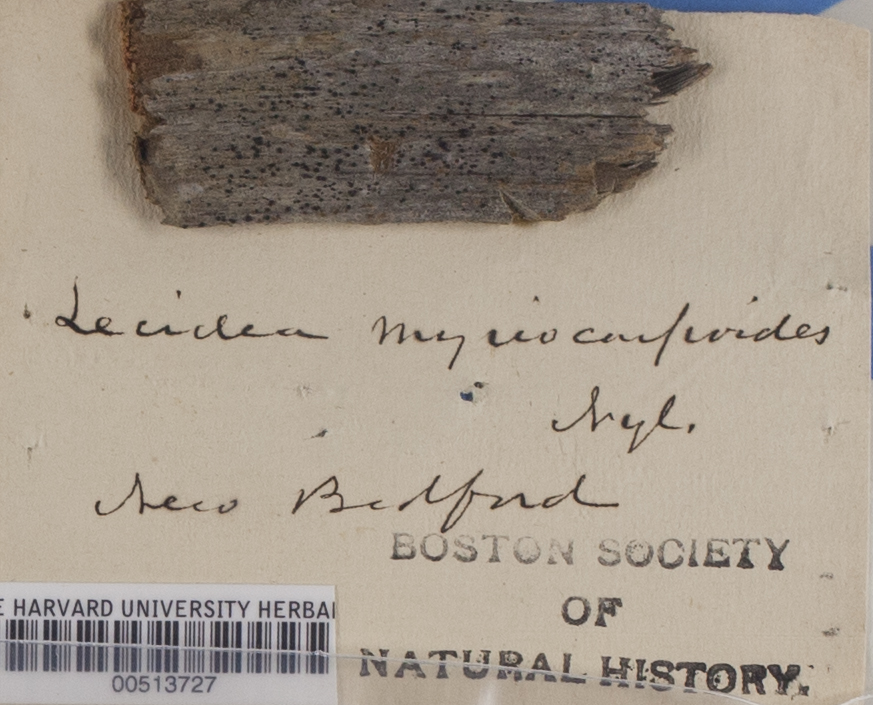 Lecidea myriocarpoides
Nyl.
New Bedford
BOSTON SOCIETY
OF
NATURAL HISTORY.
E HARVARD UNIVERSITY HERBA
00513727